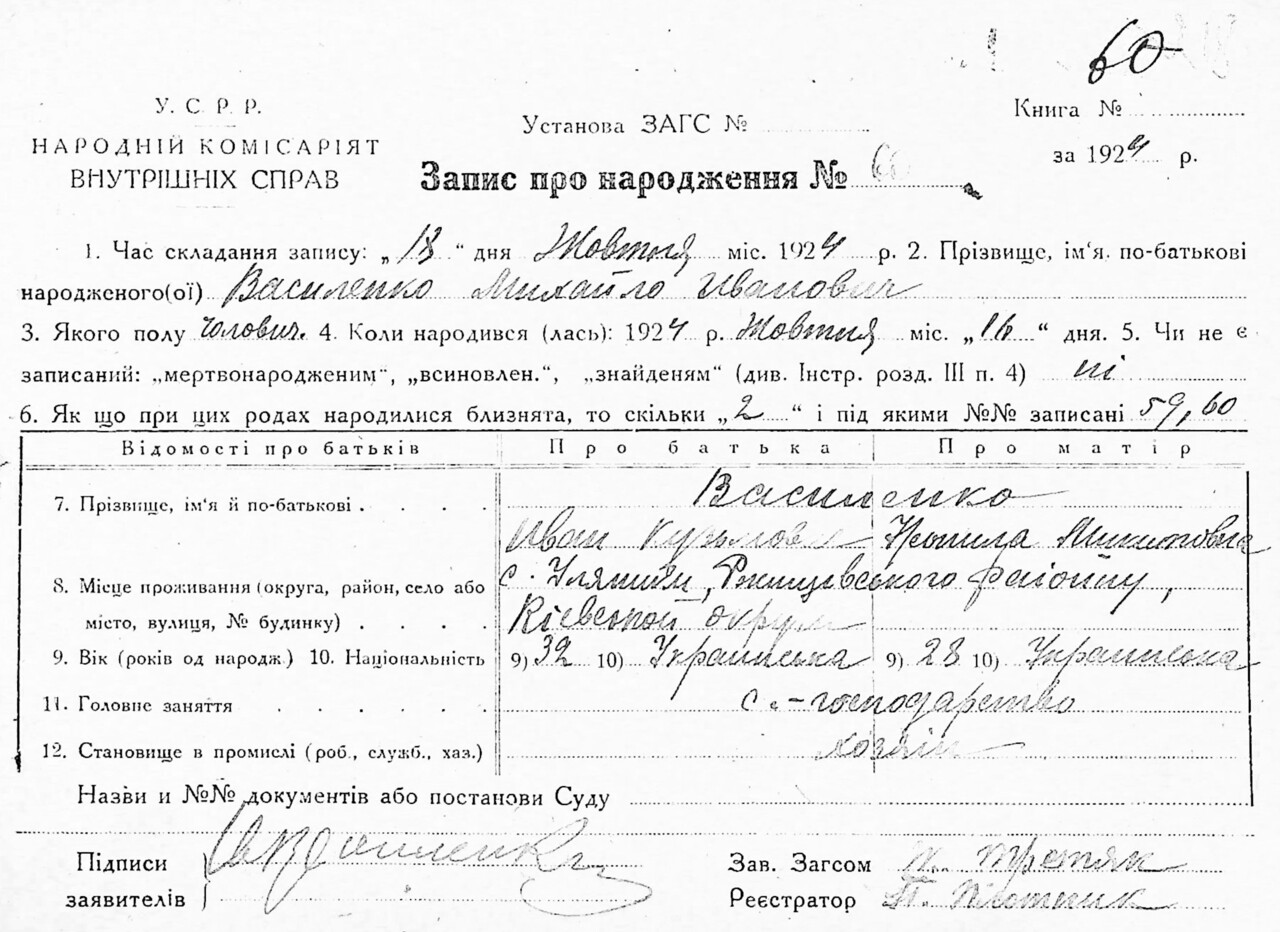 60
У. С. Р. Р.
НАРОДНІЙ КОМІСАРІЯТ
ВНУТРІШНІХ СПРАВ
Установа ЗАГС №
Книга №
за 1924 р.
Запис про народження № 60
1. Час складання запису: „18“ дня Жовтня міс. 1924 р. 2. Прізвище, ім‘я. по-батькові
народженого(ої) Василенко Михайло Иванович
3. Якого полу чолович. 4. Коли народився (лась): 1924 р. Жовтня міс. „16“ дня. 5. Чи не є
записаний: „мертвонародженим“, „всиновлен.“, „знайденям“ (див. Інстр. розд. III п. 4) ні
6. Як що при цих родах народилися близнята, то скільки „2“ і під якими №№ записані 59, 60
Відомості про батьків Про батька Про матір
7. Прізвище, ім‘я й по-батькові . . . . Василенко
Иван Кузьмов Микитовна
8. Місце проживання (округа, район, село або с. Уляники, Ржищевського району,
місто, вулиця, № будинку) . . . . Кіевської округи
9. Вік (років од народж.) 10. Національність 9) 32 10) Українська 9) 28 10) Українська
11. Головне заняття . . . . . . с.-господарство
12. Становище в промислі (роб., служб., хаз.) хозяїн
Назви и №№ документів або постанови Суду
Підписи
заявителів Василенко
Зав. Загсом Третяк
Реєстратор П. Плотник